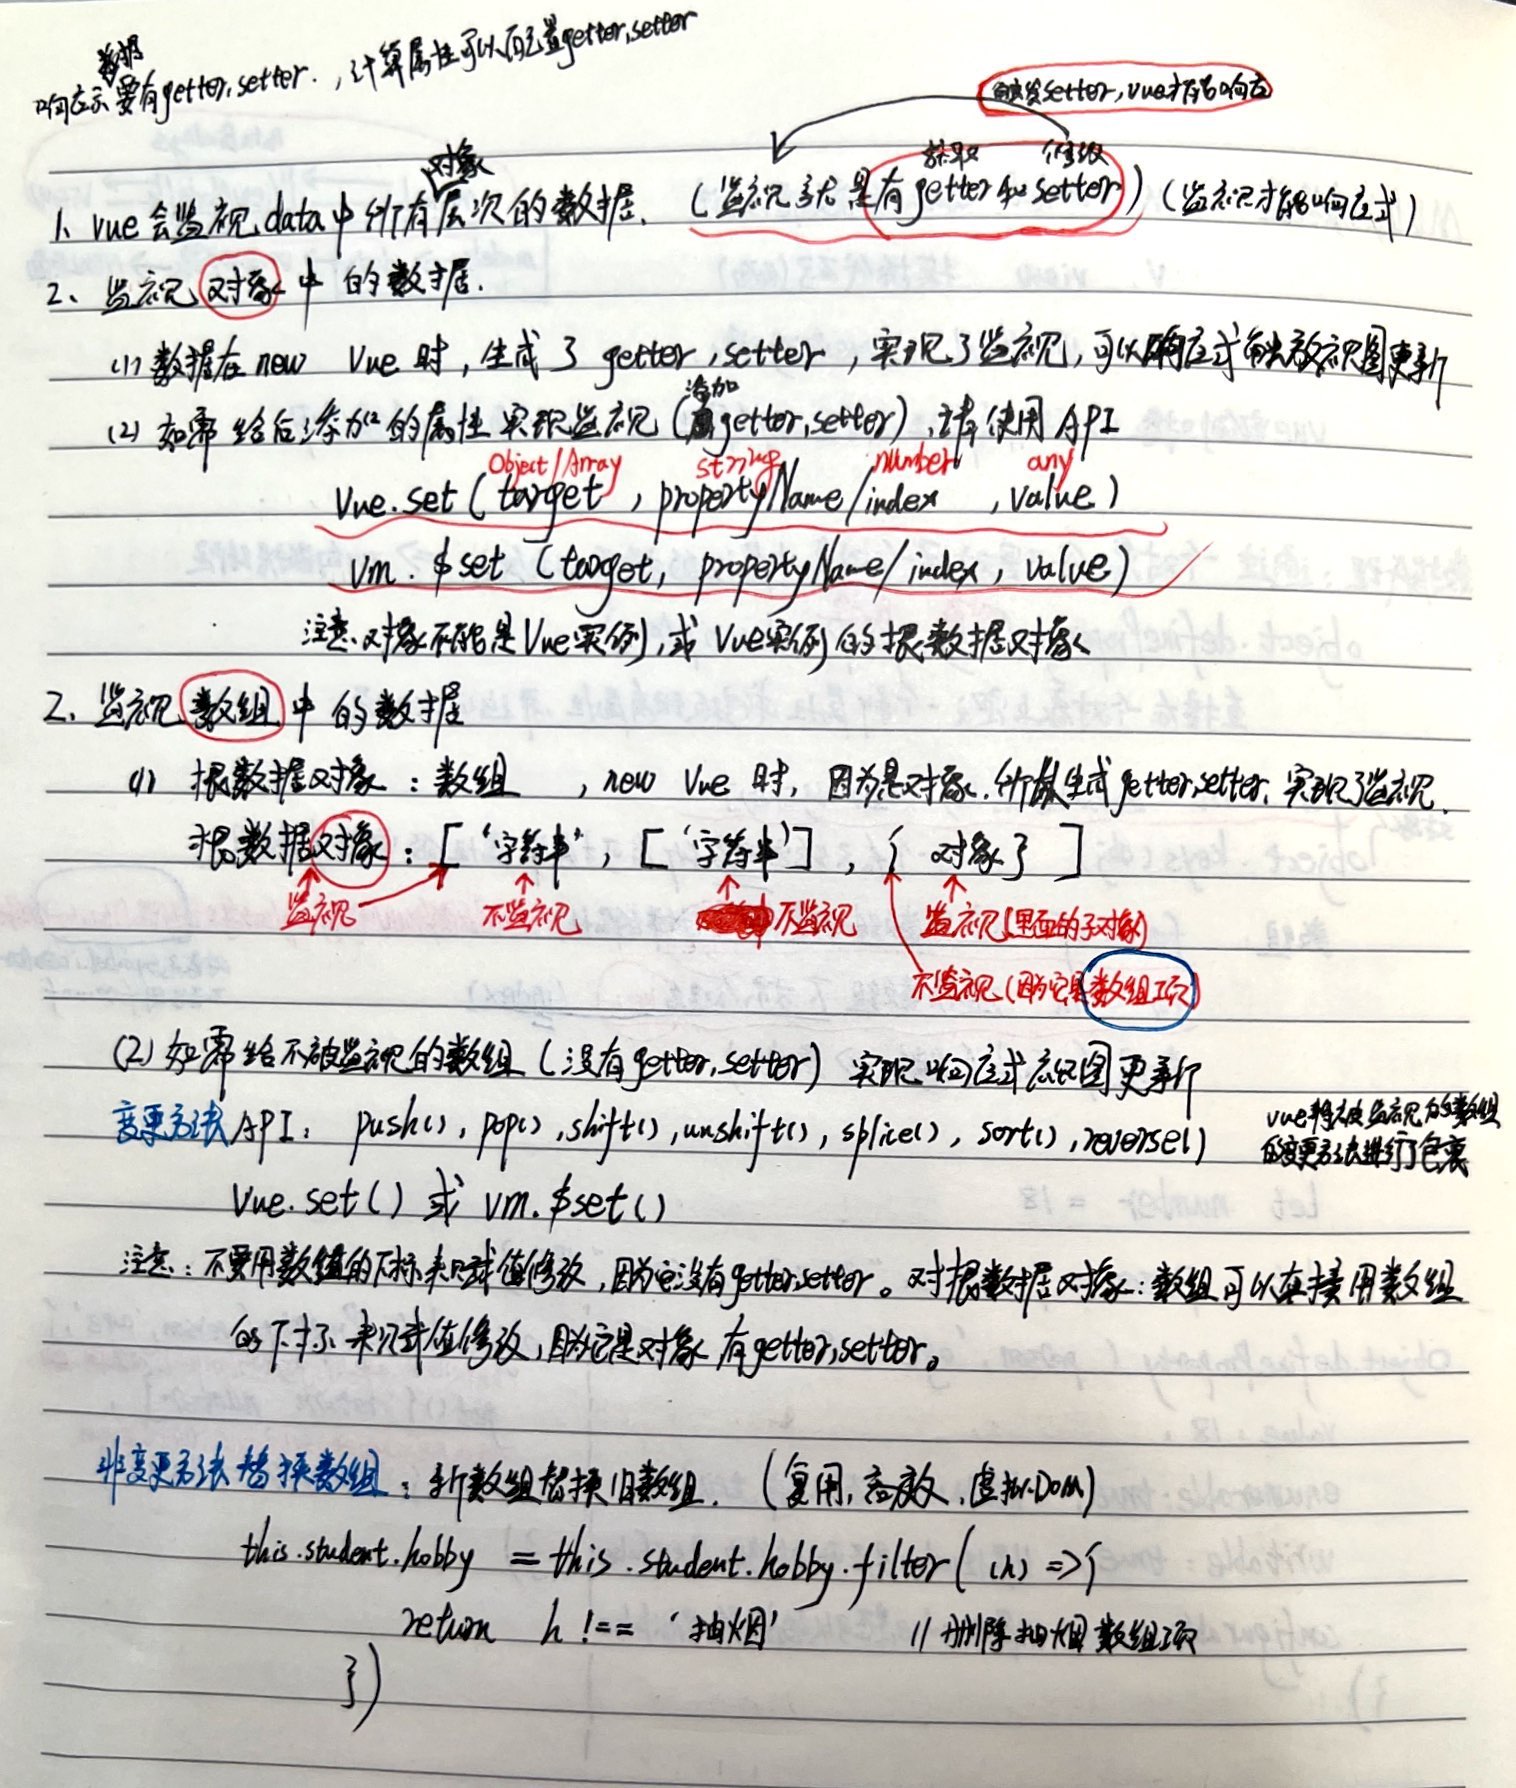 数据
响应式要有getter,setter.,计算属性可以配置getter,setter
触发setter,vue才能响应
对象
获取 修改
1、vue会监视data中所有层次的数据.(监视就是有getter和setter)(监视才能响应式)
2、监视对象中的数据.
(1)数据在new Vue时,生成了getter,setter,实现了监视,可以响应式触发视图更新
添加
(2)如需给后添加的属性实现监视(getter,setter),请使用API
Object/Array string number any
Vue.set(target,propertyName/index,value)
vm.$set(target,propertyName/index,value)
注意:对象不能是Vue实例,或Vue实例的根数据对象
2、监视数组中的数据
(1)根数据对象:数组,new Vue时,因为是对象.所以生成getter,setter,实现了监视.
根数据对象:['字符串',['字符串'],{对象}]
监视 不监视 不监视 监视(里面的子对象)
不监视(因为它是数组项)
(2)如需给不被监视的数组(没有getter,setter)实现响应式视图更新
变更方法API:push(),pop(),shift(),unshift(),splice(),sort(),reverse()
vue将被监视的数组
的变更方法进行了包裹
Vue.set()或vm.$set()
注意:不要用数组的下标来赋值修改,因为它没有getter,setter。对根数据对象:数组可以直接用数组
的下标来赋值修改,因为它是对象有getter,setter。
非变更方法替换数组:新数组替换旧数组.(复用,高效,虚拟DOM)
this.student.hobby = this.student.hobby.filter((h)=>{
return h !== '抽烟' //删除抽烟数组项
})